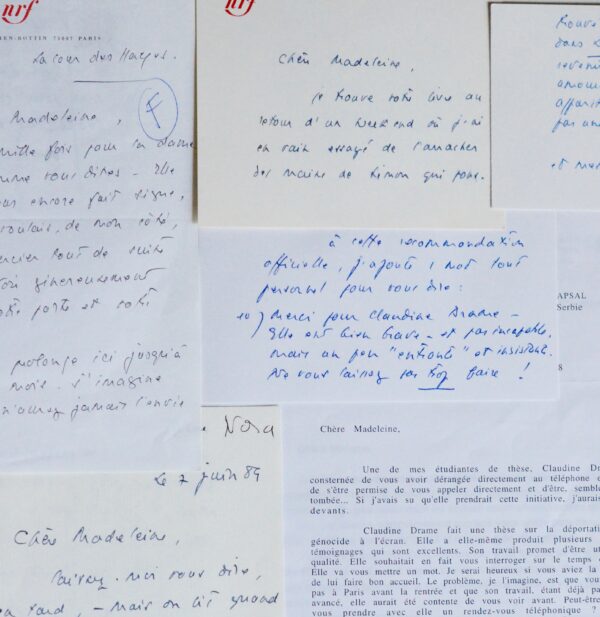 nrf
BOTTIN 75007 PARIS
La Cour des Hayes.
F
Madeleine,
mille fois pour la dame
comme vous dites - Elle
encore fait signe,
voulais, de mon côté,
tout de suite
généreusement
porte et votre
prolonge ici jusqu'à
mois. s'imagine
jamais l'envie
nrf
Chère Madeleine,
je trouve votre livre au
retour d'un weekend où j'ai
en vain essayé de l'arracher
des mains de Simon qui
trouve
dans
amour
par une
à cette recommandation
officielle, j'ajoute 1 mot tout
personnel pour vous dire :
10) Merci pour Claudine Drame -
Elle est bien brave - et pas incapable,
mais un peu "entrante" et insistante.
Ne vous laissez pas trop faire !
APSAL
Serbie
8
Nora
Le 7 juin 89
Chère Madeleine,
laissez-moi vous dire,
tard, - mais on lit quand
Chère Madeleine,
Une de mes étudiantes de thèse, Claudine Dra
consternée de vous avoir dérangée directement au téléphone e
de s'être permise de vous appeler directement et d'être, semble
tombée... Si j'avais su qu'elle prendrait cette initiative, j'aurais
devants.
Claudine Drame fait une thèse sur la déportati
génocide à l'écran. Elle a elle-même produit plusieurs
témoignages qui sont excellents. Son travail promet d'être ut
qualité. Elle souhaitait en fait vous interroger sur le temps
Elle va vous mettre un mot. Je serai heureux si vous aviez la
de lui faire bon accueil. Le problème, je l'imagine, est que vou
pas à Paris avant la rentrée et que son travail, étant déjà pa
avancé, elle aurait été contente de vous voir avant. Peut-être
vous prendre avec elle un rendez-vous téléphonique ?